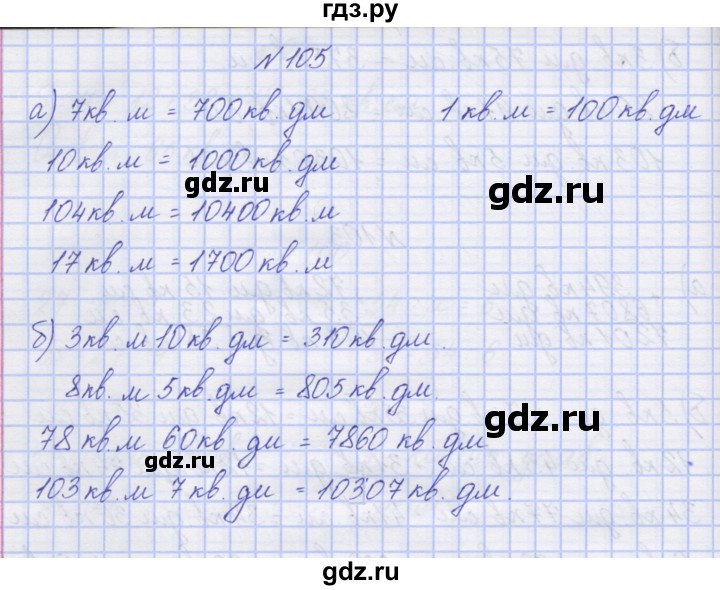 гдз.ру
№105
а) 7кв. м = 700кв. дм 1 кв. м = 100кв. дм
10кв. м = 1000кв. дм
gdz.ru
gdz.ru
104кв. м = 10400кв. м
17кв. м = 1700кв. м
б) 3кв. м 10кв. дм = 310кв. дм.
8кв. м 5кв. дм = 805кв. дм.
gdz.ru
78 кв. м 60кв. дм = 7860 кв. дм
gdz.ru
103кв. м 7 кв. дм = 10307кв. дм.
gdz.ru